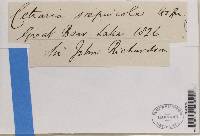 Cetraria sæpincola
Great Bear Lake 1826
Sir John Richardson